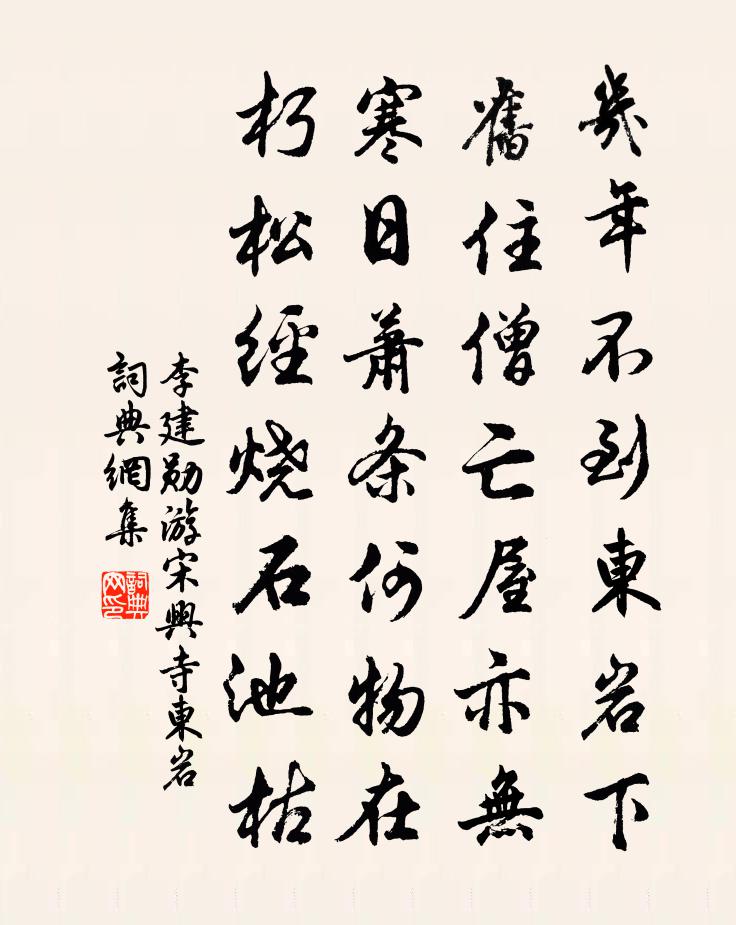 幾年不到東岩下
舊住僧亡屋亦無
寒日蕭条何物在
朽松經烧石池枯
李建勛游宋興寺東岩
詞典網集
詞典網印